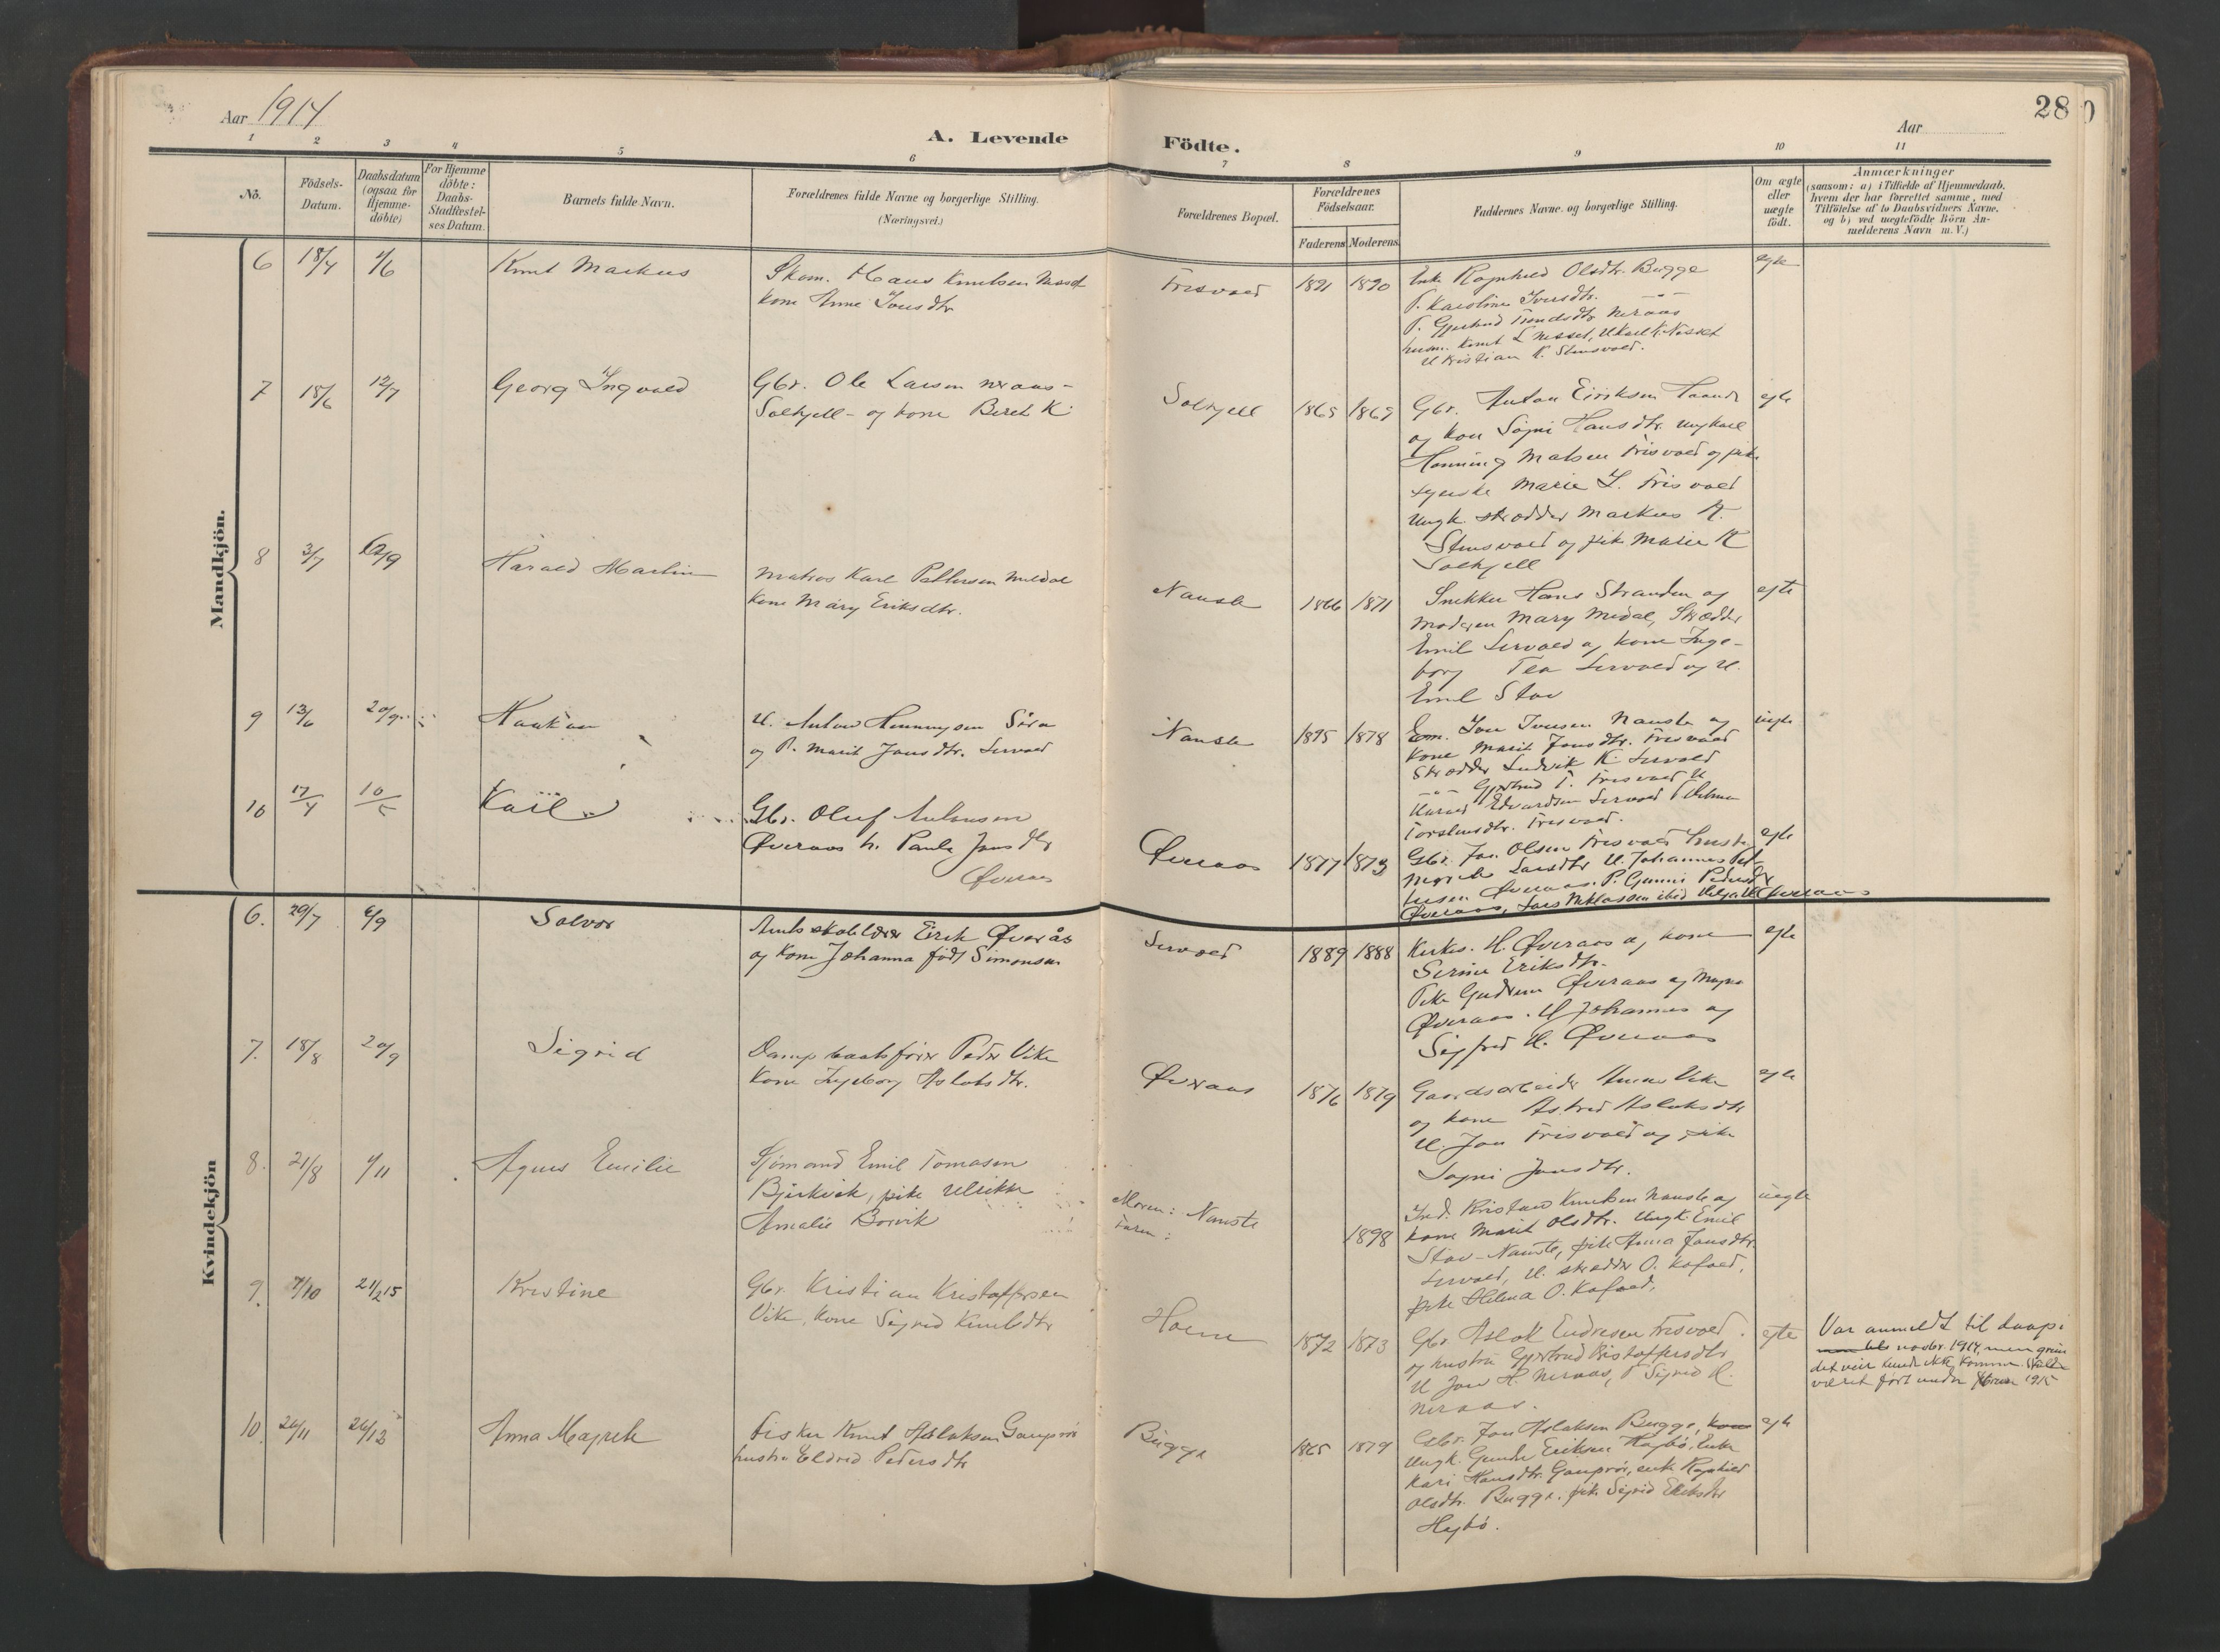 Aar 1914
A. Levende Födte.
Aar
28
1 2 3 4 5 6 7 8 9 10 11
No.
Födsels-Datum.
Daabsdatum (ogsaa for Hjemme-döbte)
For Hjemme döbte: Daabs-Stadfæstel-ses Datum.
Barnets fulde Navn.
Forældrenes fulde Navne og borgerlige Stilling.
(Næringsvei.)
Forældrenes Bopæl.
Forældrenes Födselsaar.
Faderens Moderens
Faddernes Navne og borgerlige Stilling.
Om ægte eller uægte födt.
Anmærkninger
(saasom: a) i Tilfælde af Hjemmedaab,
hvem der har forrettet samme, med
Tilföielse af to Daabsvidners Navne,
og b) ved uægtefödte Börn An-
melderens Navn m. V.)
Mandkjön.
6 18/4 1/6 Knut Markus
Skom. Hans Knutsen Nesset
kone Anne Jonsdtr
Frisvold 1891 1890
Enke Ragnhild Olsdtr. Bugge
P. Karoline Iversdtr. -"-
P. Gjertrud Trondsdtr Neraas
husm. Knut L Nesset, U Karl K. Nesset
U Kristian K. Stensvold.
egte
7 18/6 12/7 Georg Ingvald
Gbr. Ole Larsen Neraas-
Solhjell - og kone Beret K.
Solhjell 1865 1869
Gbr. Anton Eiriksen
og kone Søgni Hansdtr. ungkarl
Henning Matsen Frisvold og pike
syerske Marie I. Frisvold
Ungk. skrædder Markus K.
Stensvold og pike Marie K
Solhjell
egte
8 3/7 /9 Harald Martin
Matros Karl Pettersen Meldal
kone Mary Eriksdtr.
Nauste 1866 1871
Snekker Hans Stranden og
Moderen Mary Medal, Skrædder
Emil Lervold og kone Inge-
borg Tea Lervold og U.
Emil Stav
egte
9 13/6 20/9 Haakon
U. Anton Henningsen Sira
og P. Marit Jonsdtr. Lervold
Nauste 1895 1878
Em. Jon Iversen Nauste og
kone Marit Jonsdtr. Frisvold
Skrædder Ludvik K. Lervold
-"- Gjertrud T. Frisvold U
Harald Edvardsen Lervold P
Torstensdtr. Frisvold.
uegte
10 17/4 10/5 Karl
Gbr. Oluf Antonsen
Øveraas h. Paula Jonsdtr
Øveraas
Øveraas 1877 1873
Gbr. Jon Olsen Frisvold hustru
Marit Larsdtr U. Johannes Pet-
tersen Øveraas. P. Gunni Pedersdtr
Øveraas, Lars Niklassen ibid Helga U Øveraas
egte
Kvindekjön
6. 29/7 6/9 Solvor
Amtsskolelærer Eirik Øverås
og kone Johanna født Simonsen
Lervold 1889 1888
Kirkes. H. Øveraas og kone
Serine Eriksdtr.
Pike Gudrun Øveraas og Magna
Øveraas. U Johannes og
Sigfred H. Øveraas
egte
7. 18/8 20/9 Sigrid
Dampbaatsfører Peder Vike
kone Ingeborg Aslaksdtr.
Øveraas 1876 1879
Gaardsarbeider Vike
og kone Astrid Aslaksdtr
U. Jon Frisvold og pike
Søgni Jonsdtr.
egte
8. 21/8 1/11 Agnes Emilie
Sjømand Emil Tomasen
Bjørkvik, pike Ulrikke
Amalie Borvik
Moren: Nauste
Faren:
1898
Ind. Kristian Knutsen Nauste og
kone Marit Olsdtr. Ungk. Emil
Stav-Nauste, pike Anna Jonsdtr.
Lervold, U. skrædder O. Kafoed,
pike Helena O. Kafoed.
uegte
9. 7/10 21/2 15 Kristine
Gbr. Kristian Kristoffersen
Vike, kone Sigrid Knutsdtr
Hoem 1872 1873
Gbr. Aslak Endresen Frisvold
og hustru Gjertrud Kristoffersdtr
U Jon H. Neraas, P Sigrid H.
Neraas.
egte
Var anmeldt til daap i
novbr. 1914, men grun-
det veir kunde ikke komme. Skulde
været ført under 1915
10. 26/11 26/12 Anna Magrete
Fisker Knut Aslaksen Gauprør
hustru Eldrid Pedersdtr
Bugge 1865 1879
Gbr. Jon Aslaksen Bugge, kone
Ungk. Gunder Eriksen Høgbø, Enke
Kari Hansdtr. Gauprør, enke Ragnhild
Olsdtr. Bugge. pike Sigrid Eriksdtr
Høgbø.
egte